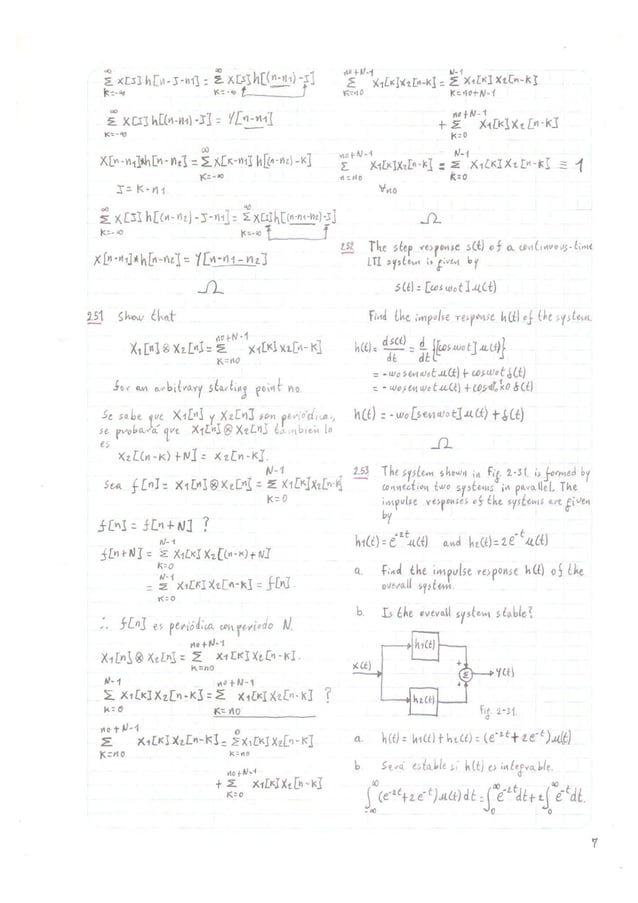 ∞ Σ K=-∞ X[J] h[n-J-n1] = ∞ Σ K=-∞ X[J] h[(n-n1)-J]
∞ Σ K=-∞ X[J] h[(n-n1)-J] = Y[n-n1]
X[n-n1]*h[n-n2] = ∞ Σ K=-∞ X[K-n1] h[(n-n2)-K]
J = K-n1
∞ Σ K=-∞ X[J] h[(n-n2)-J-n1] = ∞ Σ K=-∞ X[J] h[(n-n1-n2)-J]
X[n-n1]*h[n-n2] = Y[n-n1-n2]
Ω
2.51 Show that
X1[n] ⊗ X2[n] = no+N-1 Σ K=no X1[K] X2[n-K]
for an arbitrary starting point no.
Se sabe que X1[n] y X2[n] son periódicas,
se probará que X1[n] ⊗ X2[n] también lo
es
X2[(n-K)+N] = X2[n-K].
Sea f[n] = X1[n] ⊗ X2[n] = N-1 Σ K=0 X1[K] X2[n-K]
f[n] = f[n+N] ?
f[n+N] = N-1 Σ K=0 X1[K] X2[(n-K)+N]
= N-1 Σ K=0 X1[K] X2[n-K] = f[n].
∴ f[n] es periódica con periodo N.
X1[n] ⊗ X2[n] = no+N-1 Σ K=no X1[K] X2[n-K].
N-1 Σ K=0 X1[K] X2[n-K] = no+N-1 Σ K=no X1[K] X2[n-K] ?
no+N-1 Σ K=no X1[K] X2[n-K] = 0 Σ K=no X1[K] X2[n-K]
+ no+N-1 Σ K=0 X1[K] X2[n-K]
no+N-1 Σ K=no X1[K] X2[n-K] = N-1 Σ K=no+N-1 X1[K] X2[n-K]
+ no+N-1 Σ K=0 X1[K] X2[n-K]
no+N-1 Σ n=no X1[K] X2[n-K] = N-1 Σ K=0 X1[K] X2[n-K] ≡ 1
∀no
Ω
2.52 The step response s(t) of a continuous-time
LTI system is given by
s(t) = [cos wot] u(t)
Find the impulse response h(t) of the system.
h(t) = ds(t)/dt = d/dt {[cos wot] u(t)}
= -wo sen wot u(t) + cos wot δ(t)
= -wo sen wot u(t) + δ(t)
h(t) = -wo [sen wot] u(t) + δ(t)
Ω
2.53 The system shown in Fig. 2-31. is formed by
connection two systems in parallel. The
impulse responses of the systems are given
by
h1(t) = e^-2t u(t) and h2(t) = 2e^-t u(t)
a. Find the impulse response h(t) of the
overall system.
b. Is the overall system stable?
h1(t)
X(t) + Σ Y(t)
+
h2(t)
Fig. 2-31.
a. h(t) = h1(t) + h2(t) = (e^-2t + 2e^-t) u(t)
b. Será estable si h(t) es integrable.
∫ -∞ ∞ (e^-2t + 2e^-t) u(t) dt = ∫ 0 ∞ e^-2t dt + 2 ∫ 0 ∞ e^-t dt.
7